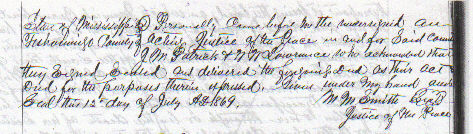 State of Mississippi } Personally Came before me the undersigned an
Tishomingo County } acting Justice of the Peace in and for Said County
J. M. Patrick & W. Lowrance who acknowledged that
they Signed Sealed and delivered the foregoing Deed as their act
and for the purposes therein expressed. Given under my hand and
Seal this 12th day of July AD 1869. M M Smith Seal
Justice of the Peace